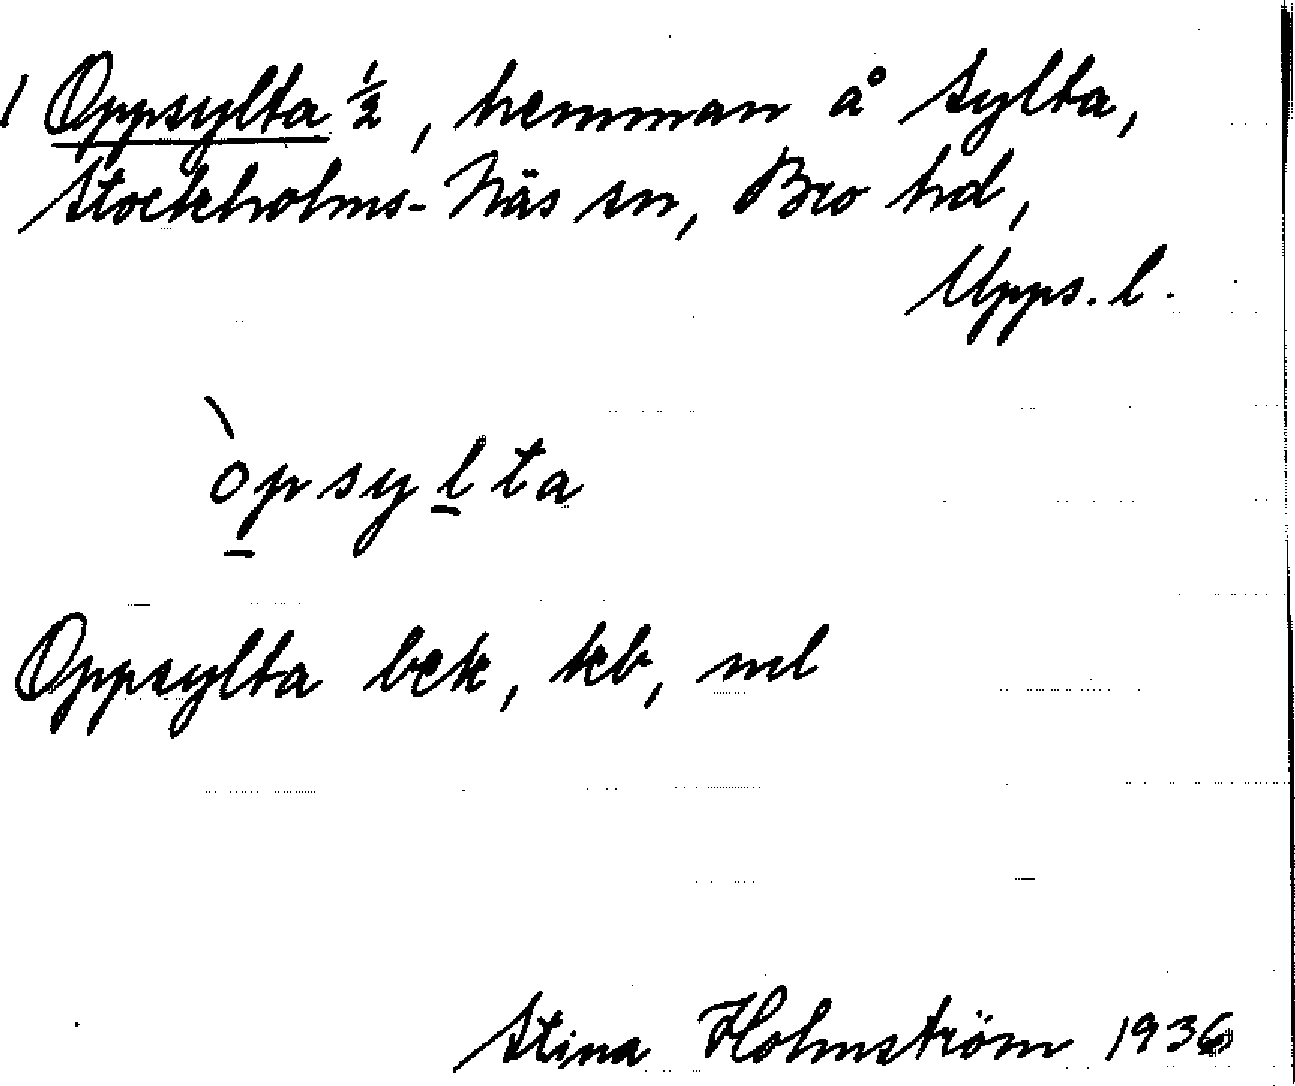 1 Oppsylta ½, hemman å Sylta,
Stockholms-Näs sn, Bro hd,
Upps. l.
òpsylta
Oppsylta bek, kb, ml
Stina Holmström 1936